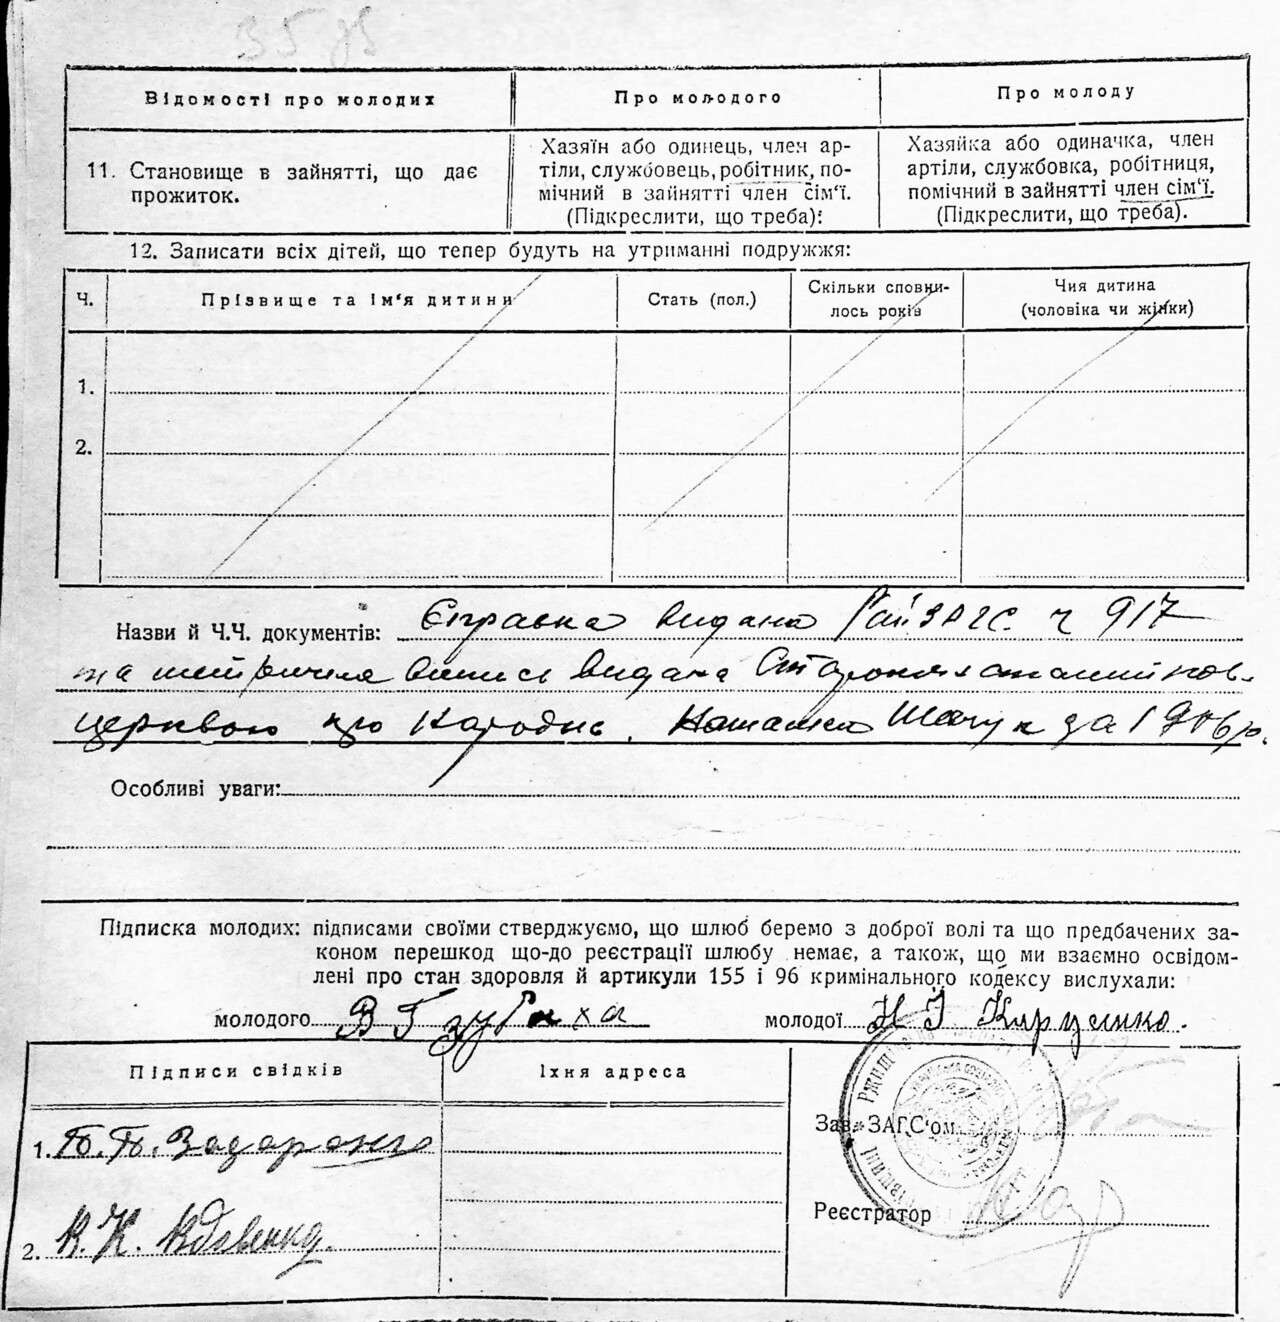 Відомості про молодих
Про молодого
Про молоду
11. Становище в зайнятті, що дає прожиток.
Хазяїн або одинець, член ар-
тіли, службовець, робітник, по-
мічний в зайнятті член сім'ї.
(Підкреслити, що треба):
Хазяйка або одиначка, член
артіли, службовка, робітниця,
помічний в зайнятті член сім'ї.
(Підкреслити, що треба).
12. Записати всіх дітей, що тепер будуть на утриманні подружжя:
Ч.
Прізвище та ім'я дитини
Стать (пол.)
Скільки сповни-
лось років
Чия дитина
(чоловіка чи жінки)
1.
2.
Назви й Ч.Ч. документів: Справка видана Рай ЗАГС. ч 917
та метрична випись видана
церквою про народж. за 1906 р.
Особливі уваги:
Підписка молодих: підписами своїми стверджуємо, що шлюб беремо з доброї волі та що предбачених за-
коном перешкод що-до реєстрації шлюбу немає, а також, що ми взаємно освідом-
лені про стан здоровля й артикули 155 і 96 кримінального кодексу вислухали:
молодого В Г Зубаха молодої Н І
Підписи свідків
Їхня адреса
1.
2.
Зав. ЗАГС'ом
Реєстратор